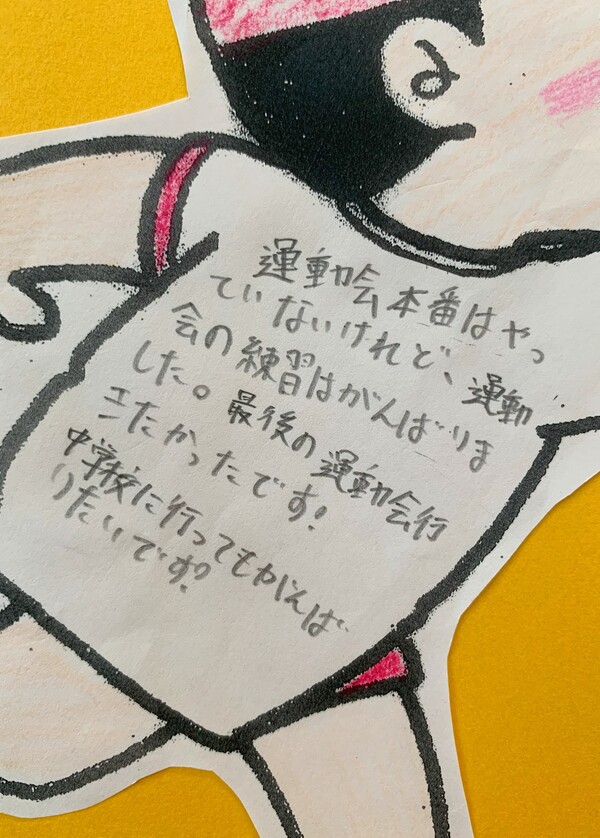 運動会本番はやっ
ていないけれど、運動
会の練習はがんばりま
した。最後の運動会行
きたかったです!
中学校に行ってもがんば
りたいです?